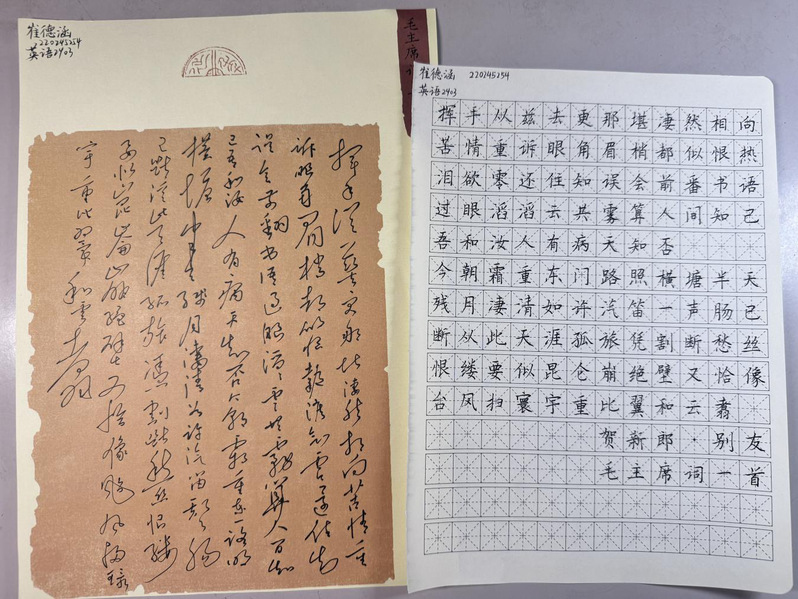 崔德涵
220245254
英语2403
毛主席词一
挥手从兹去更那堪凄然相向苦情重
诉眼角眉梢都似恨热泪欲零还住知
误会前翻书语过眼滔滔云共雾算人间知
己吾和汝人有病天知否今朝霜重东门路照
横塘半天残月凄清如许汽笛一声肠
已断从此天涯孤旅凭割断愁丝恨缕
要似昆仑崩绝壁又恰像台风扫寰
宇重比翼和云翥
崔德涵 220245254
英语2403
挥手从兹去更那堪凄然相向
苦情重诉眼角眉梢都似恨热
泪欲零还住知误会前番书语
过眼滔滔云共雾算人间知己
吾和汝人有病天知否
今朝霜重东门路照横塘半天
残月凄清如许汽笛一声肠已
断从此天涯孤旅凭割断愁丝
恨缕要似昆仑崩绝壁又恰像
台风扫寰宇重比翼和云翥
贺新郎·别友
毛主席词一首